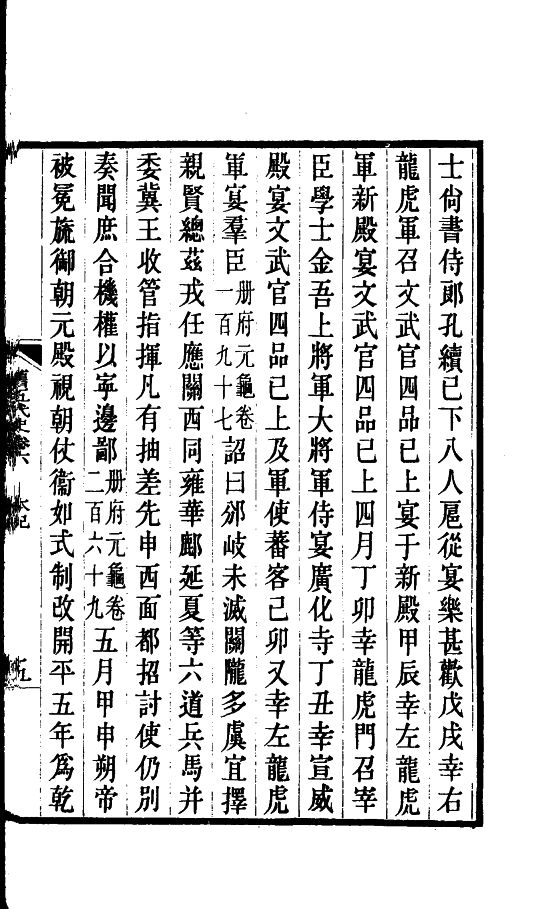 士尙書侍郞孔續已下八人扈從宴樂甚歡戊戌幸右
龍虎軍召文武官四品已上宴于新殿甲辰幸左龍虎
軍新殿宴文武官四品已上四月丁卯幸龍虎門召宰
臣學士金吾上將軍大將軍侍宴廣化寺丁丑幸宣威
殿宴文武官四品已上及軍使蕃客己卯又幸左龍虎
軍宴羣臣册府元龜卷一百九十七詔曰邠岐未滅關隴多虞宜擇
親賢總兹戎任應關西同雍華鄜延夏等六道兵馬并
委冀王收管指揮凡有抽差先申西面都招討使仍別
奏聞庶合機權以寧邊鄙册府元龜卷二百六十九五月甲申朔帝
被冕旒御朝元殿視朝仗衞如式制改開平五年爲乾
舊五代史卷六 本紀 五